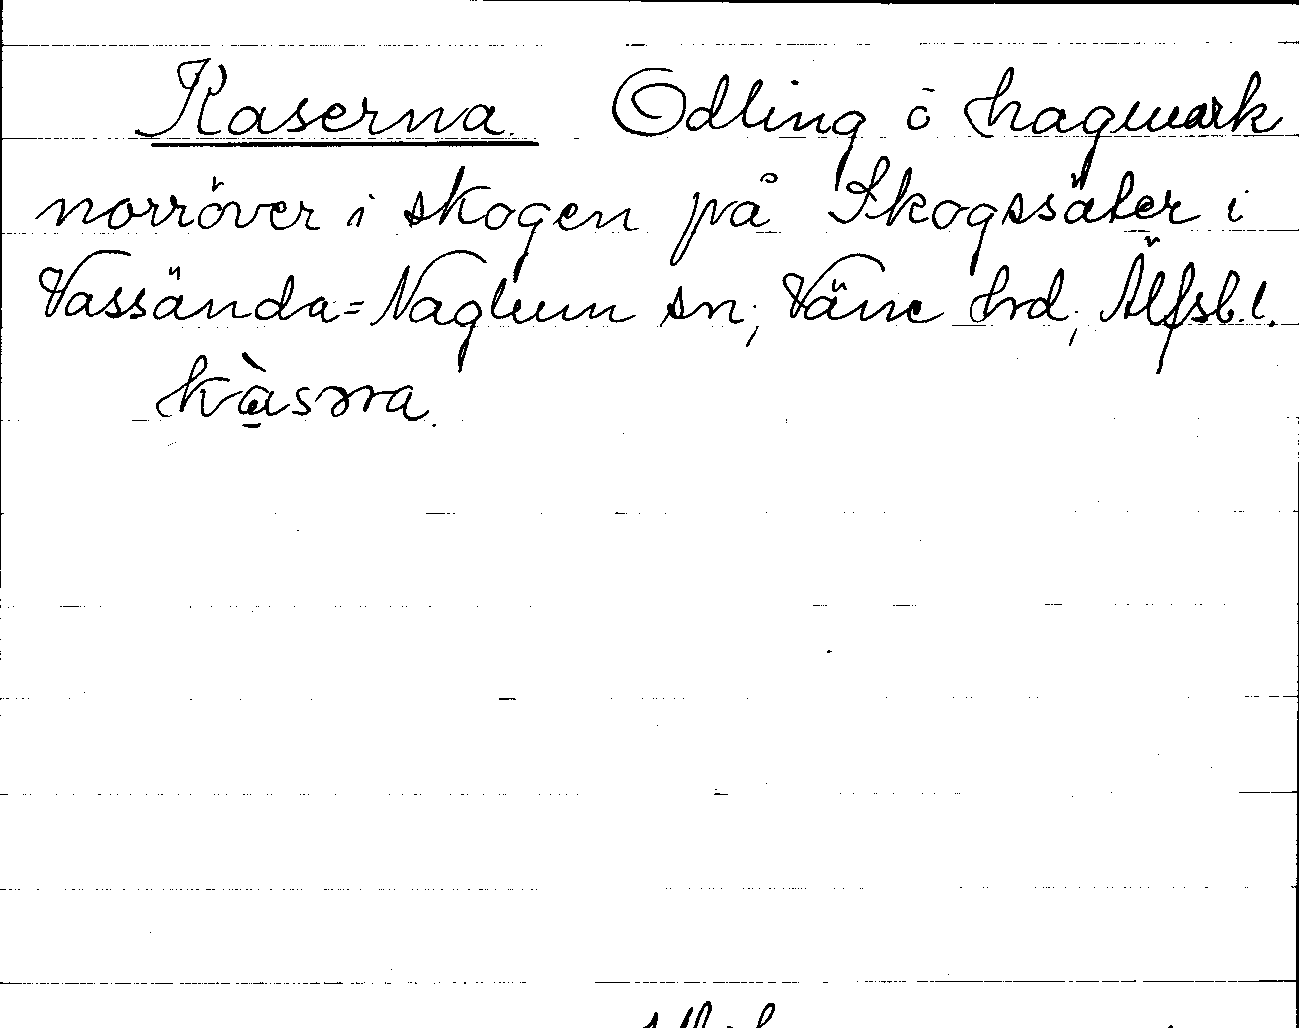 Kaserna. Odling o hagmark
norröver i skogen på Skogssäter i
Vassända=Naglum sn; Väne hrd; Älfsb.l.